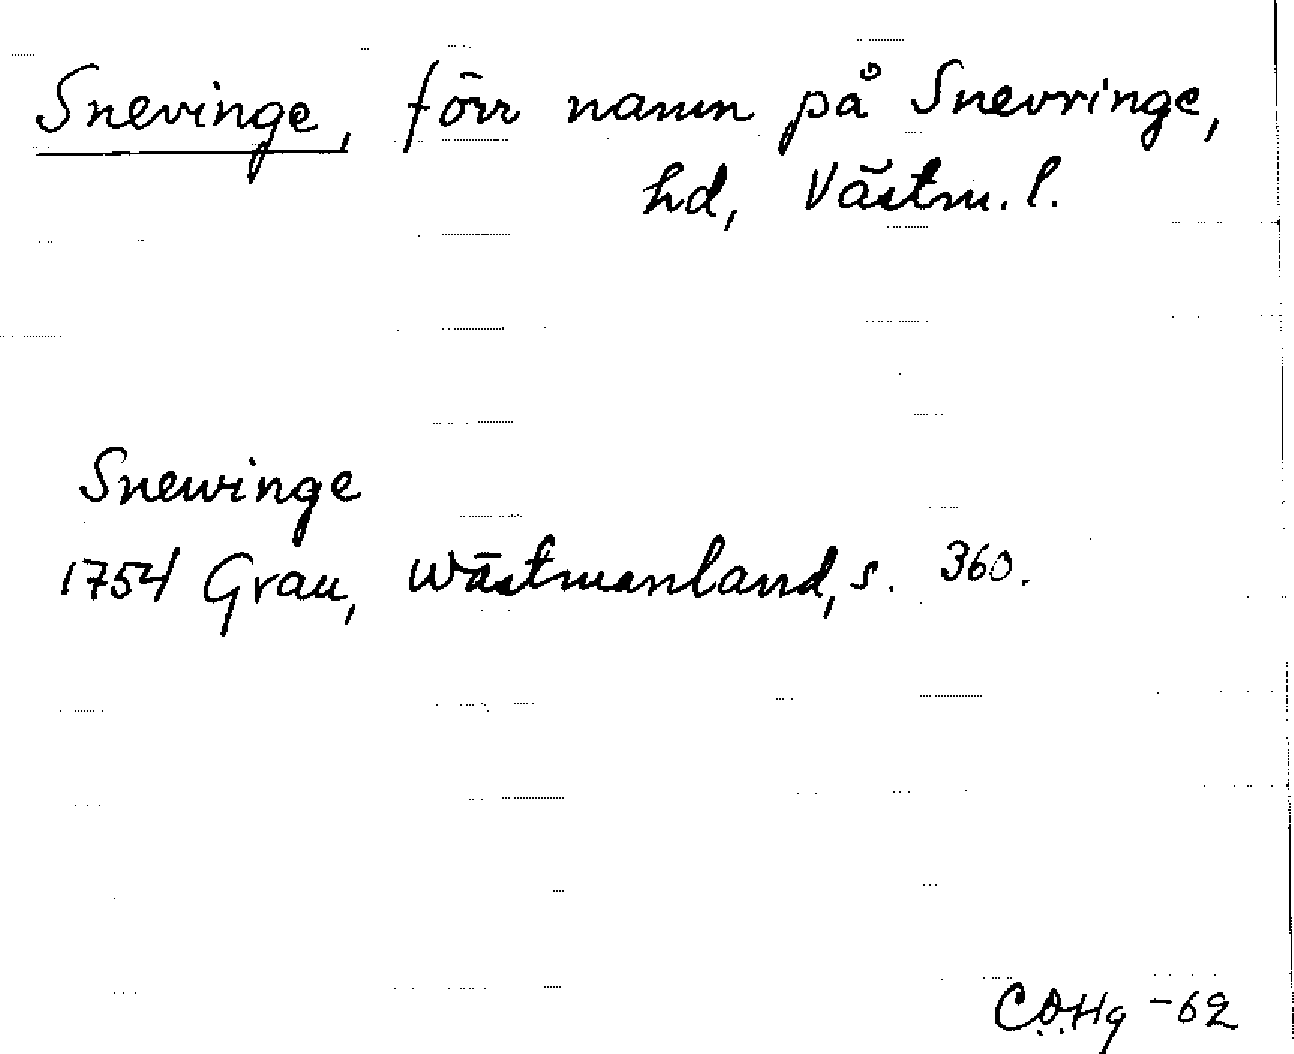 Snevinge, förr namn på Snevringe,
hd, Västm. l.
Snewinge
1754 Grau, Wästmanland, s. 360.
C.O.Hg -62